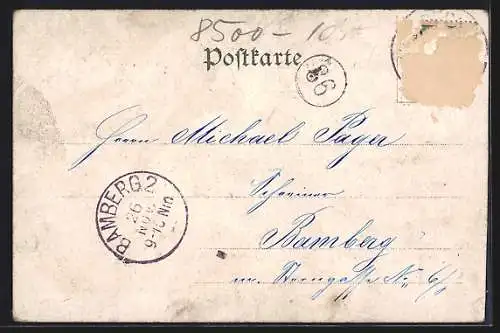 8500 - 10
Postkarte
Herrn Michael Payer
Schreiner
Bamberg
BAMBERG 2
26
NOV
9-10 Nm